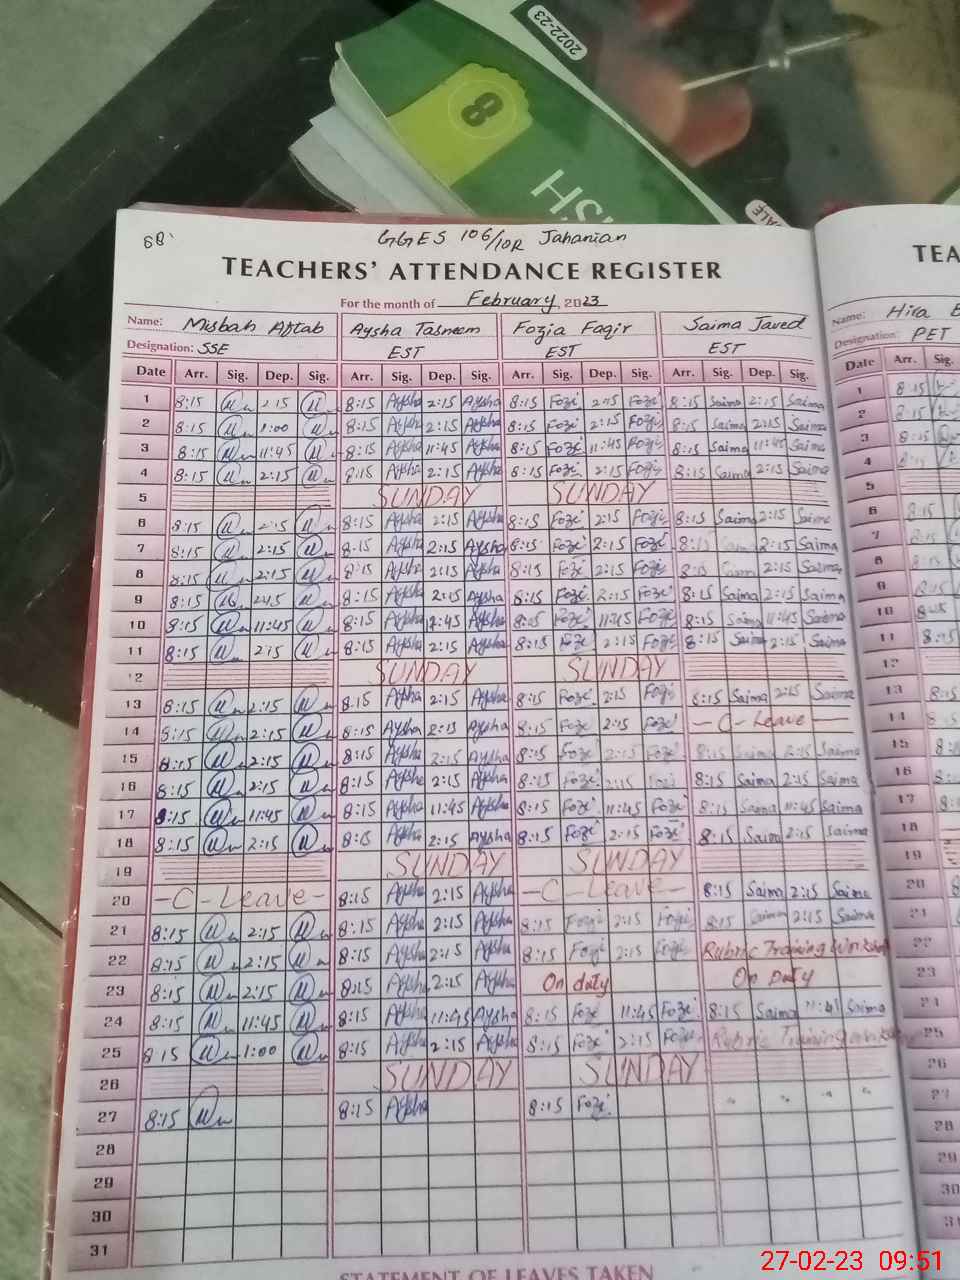 2022-23
8
SH
SALE
68
GGES 106/10R Jahanian
TEACHERS' ATTENDANCE REGISTER
For the month of February, 2023
Name: Misbah Aftab Aysha Tasneem Fozia Faqir Saima Javed
Designation: SSE EST EST EST
Date Arr. Sig. Dep. Sig. Arr. Sig. Dep. Sig. Arr. Sig. Dep. Sig. Arr. Sig. Dep. Sig.
1 8:15 2:15 8:15 Aysha 2:15 Aysha 8:15 Fozi 2:15 Fozi 8:15 Saima 2:15 Saima
2 8:15 1:00 8:15 Aysha 2:15 Aysha 8:15 Fozi 2:15 Fozi 8:15 Saima 2:15 Saima
3 8:15 11:45 8:15 Aysha 11:45 Aysha 8:15 Fozi 11:45 Fozi 8:15 Saima 11:45 Saima
4 8:15 2:15 8:15 Aysha 2:15 Aysha 8:15 Fozi 2:15 Fozi 8:15 Saima 2:15 Saima
5 SUNDAY SUNDAY
6 8:15 2:15 8:15 Aysha 2:15 Aysha 8:15 Fozi 2:15 Fozi 8:15 Saima 2:15 Saima
7 8:15 2:15 8:15 Aysha 2:15 Aysha 8:15 Fozi 2:15 Fozi 8:15 2:15 Saima
8 8:15 2:15 8:15 Aysha 2:15 Aysha 8:15 Fozi 2:15 Fozi 8:15 2:15 Saima
9 8:15 2:15 8:15 Aysha 2:15 Aysha 8:15 Fozi 2:15 Fozi 8:15 Saima 2:15 Saima
10 8:15 11:45 8:15 Aysha Aysha 8:15 Fozi 11:45 Fozi 8:15 Saima 11:45 Saima
11 8:15 2:15 8:15 Aysha 2:15 Aysha 8:15 Fozi 2:15 Fozi 8:15 Saima 2:15 Saima
12 SUNDAY SUNDAY
13 8:15 2:15 8:15 Aysha 2:15 Aysha 8:15 Fozi 2:15 Fozi 8:15 Saima 2:15 Saima
14 8:15 2:15 8:15 Aysha 2:15 Aysha 8:15 Fozi 2:15 Fozi - C - Leave -
15 8:15 2:15 8:15 Aysha 2:15 Aysha 8:15 Fozi 2:15 Fozi 8:15 Saima 2:15 Saima
16 8:15 2:15 8:15 Aysha 2:15 Aysha 8:15 Fozi 2:15 Fozi 8:15 Saima 2:15 Saima
17 8:15 11:45 8:15 Aysha 11:45 Aysha 8:15 Fozi 11:45 Fozi 8:15 Saima 11:45 Saima
18 8:15 2:15 8:15 Aysha 2:15 Aysha 8:15 Fozi 2:15 Fozi 8:15 Saima 2:15 Saima
19 SUNDAY SUNDAY
20 - C - Leave - 8:15 Aysha 2:15 Aysha - C - Leave - 8:15 Saima 2:15 Saima
21 8:15 2:15 8:15 Aysha 2:15 Aysha 8:15 Fozi 2:15 Fozi 8:15 Saima 2:15 Saima
22 8:15 2:15 8:15 Aysha 2:15 Aysha 8:15 Fozi 2:15 Fozi Rubric Training Workshop
23 8:15 2:15 8:15 Aysha 2:15 Aysha On duty On Duty
24 8:15 11:45 8:15 Aysha 11:45 Aysha 8:15 Fozi 11:45 Fozi 8:15 Saima Saima
25 8:15 1:00 8:15 Aysha 2:15 Aysha 8:15 Fozi 2:15 Fozi Rubric Training Workshop
26 SUNDAY SUNDAY
27 8:15 8:15 Aysha 8:15 Fozi " " " "
28
29
30
31
STATEMENT OF LEAVES TAKEN
TEA
Name: Hira
Designation: PET
Date Arr. Sig.
1 8:15
2 8:15
3 8:15
4 8:15
5
6 8:15
7 8:15
8 8:15
9 8:15
10 8:15
11 8:15
12
13 8:15
14
15
16
17
18
19
20
21
22
23
24
25
26
27
28
29
30
31
27-02-23 09:51